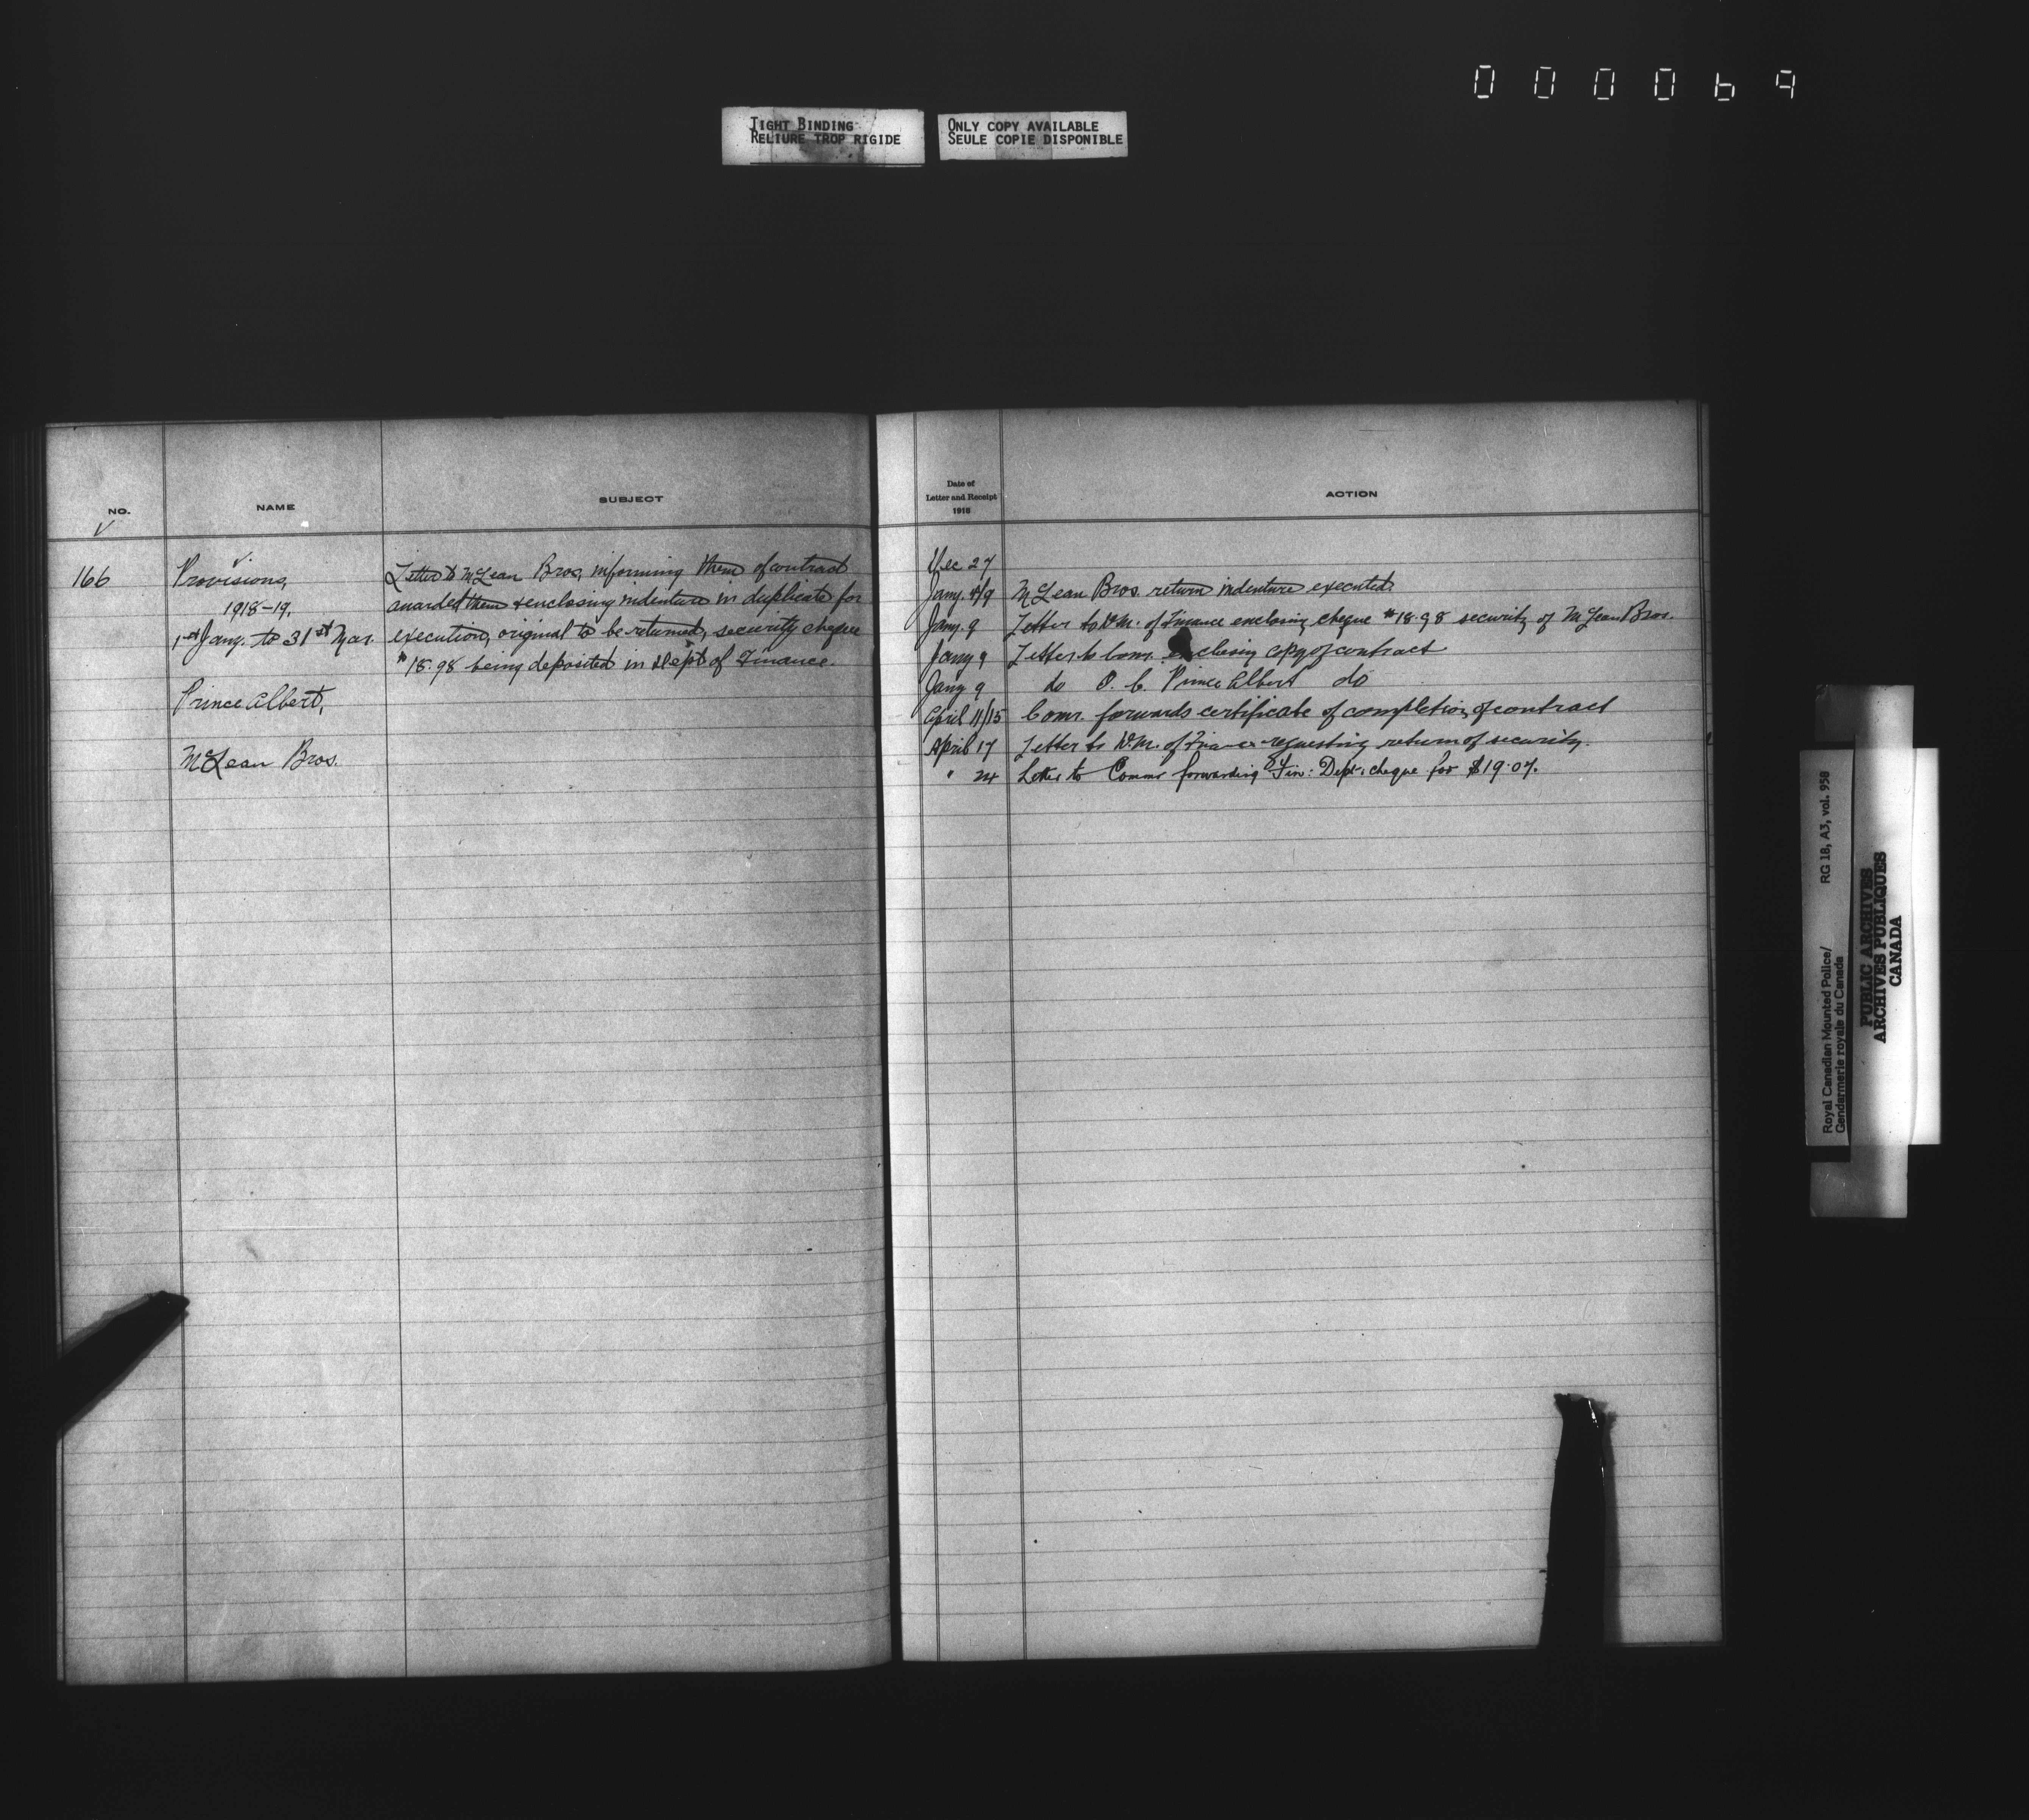 000069
TIGHT BINDING
RELIURE TROP RIGIDE
ONLY COPY AVAILABLE
SEULE COPIE DISPONIBLE
NO.
NAME
SUBJECT
166
Provisions,
1918-19.
1st Jany. to 31st Mar.
Prince Albert,
McLean Bros.
Letter to McLean Bros, informing them of contract
awarded them & enclosing indenture in duplicate for
execution, original to be returned, security cheque
$18.98 being deposited in Dept of Finance.
Date of
Letter and Receipt
1918
ACTION
Dec 27
Jany. 4/9 McLean Bros. return indenture executed.
Jany. 9 Letter to D.M. of Finance enclosing cheque $18.98 security of McLean Bros.
Jany 9 Letter to Comr. enclosing copy of contract
Jany 9 do O. C. Prince Albert do
April 11/15 Comr. forwards certificate of completion of contract
April 17 Letter to D.M. of Finance requesting return of security.
" 24 Letter to Commr forwarding Fin: Dept. cheque for $19.07.
Royal Canadian Mounted Police/
Gendarmerie royale du Canada
RG 18, A3, vol. 958
PUBLIC ARCHIVES
ARCHIVES PUBLIQUES
CANADA